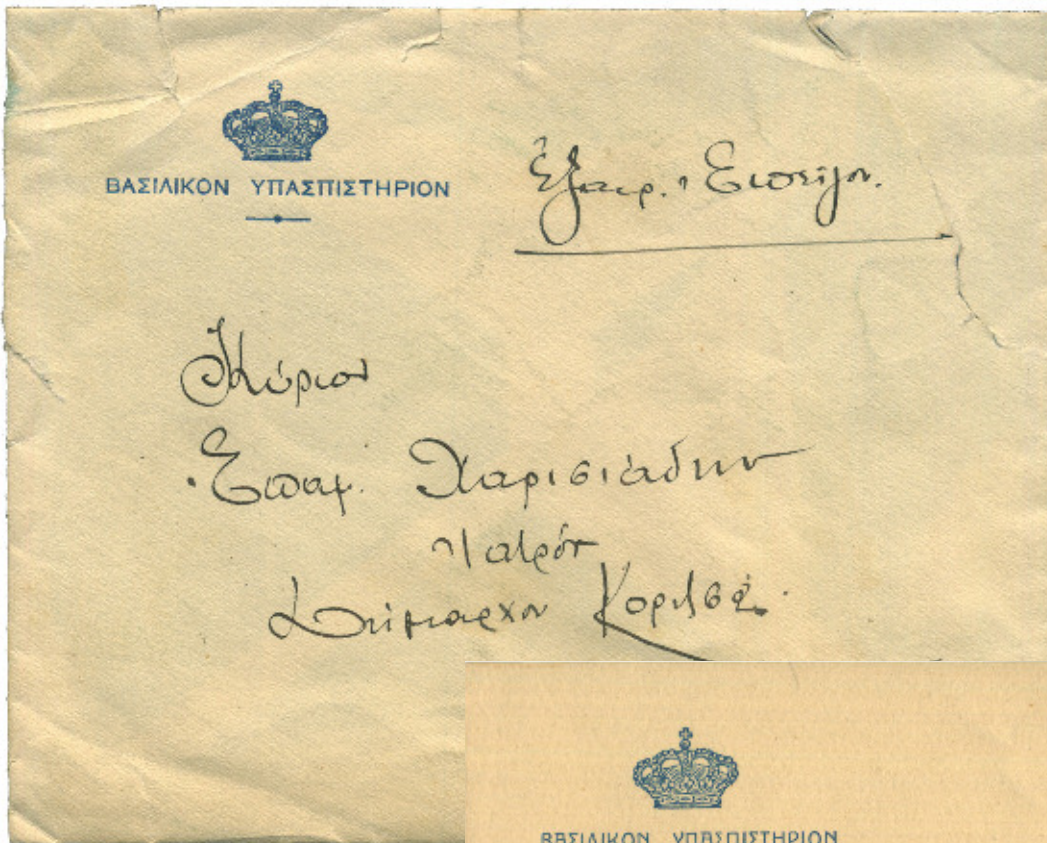 ΒΑΣΙΛΙΚΟΝ ΥΠΑΣΠΙΣΤΗΡΙΟΝ
Ἐξαιρ. Ἐπεῖγον.
Κύριον
Ἐπαμ. Χαρισιάδην
Ἰατρὸν
Δήμαρχον Κορυτσᾶς.
ΒΑΣΙΛΙΚΟΝ ΥΠΑΣΠΙΣΤΗΡΙΟΝ